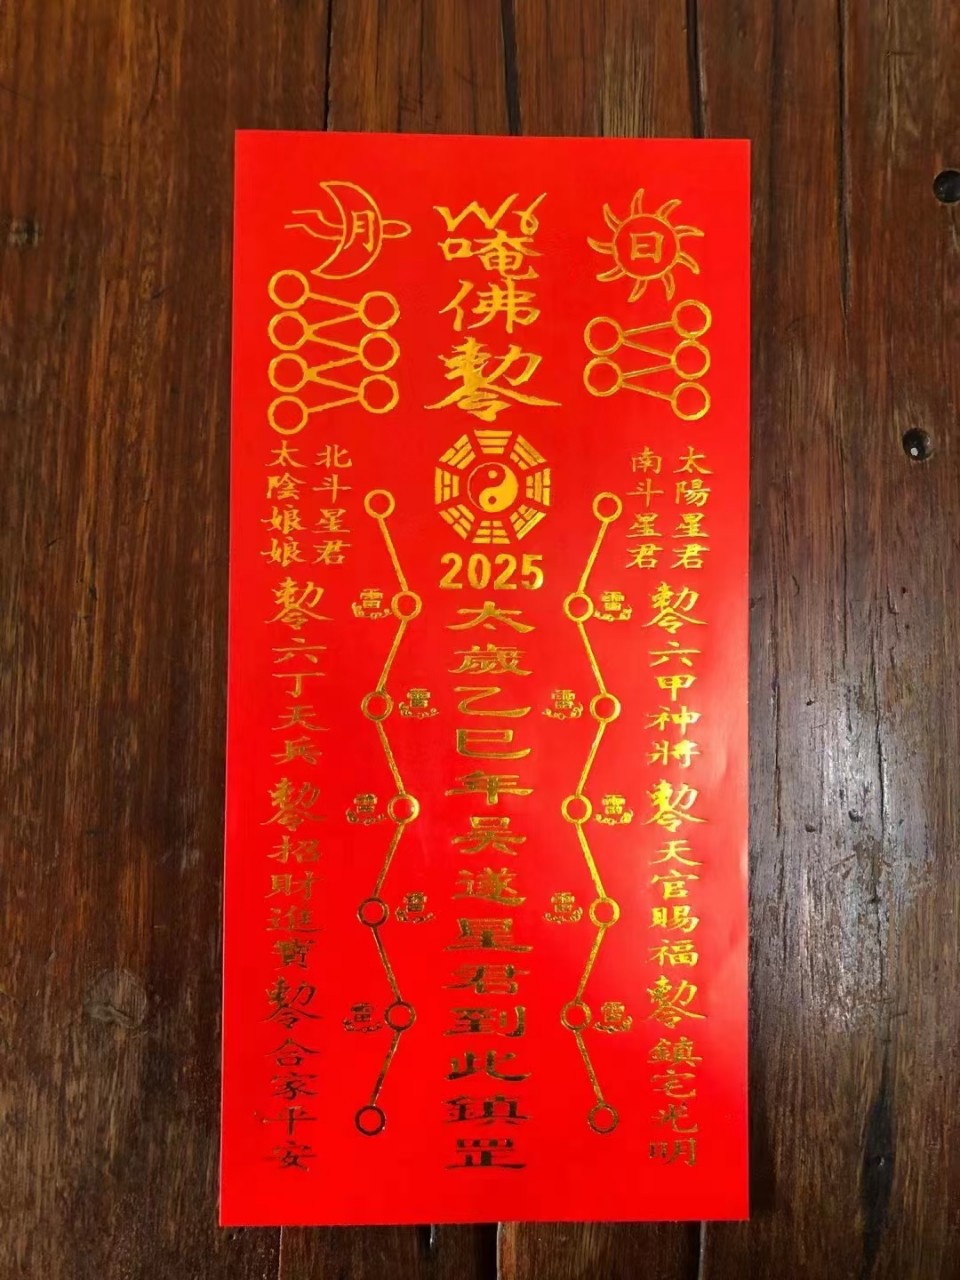 日
太陽星君
南斗星君
勅令六甲神將
勅令天官賜福
勅令鎮宅光明
唵佛勅令
2025
太歲乙巳年吴遂星君到此鎮罡
月
北斗星君
太陰娘娘
勅令六丁天兵
勅令招財進寶
勅令合家平安